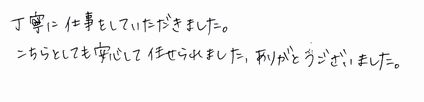 丁寧に仕事をしていただきました。
こちらとしても安心して任せられました、ありがとうございました。